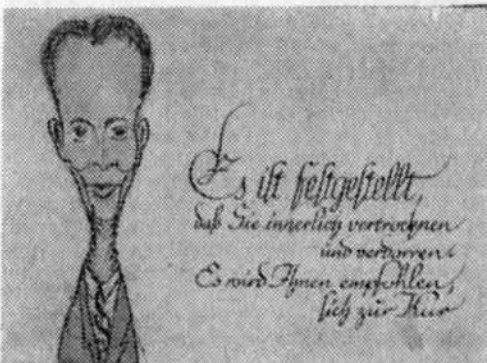 Es ist festgestellt,
daß Sie innerlich vertrocknen
und verdorren.
Es wird Ihnen empfohlen,
sich zur Kur